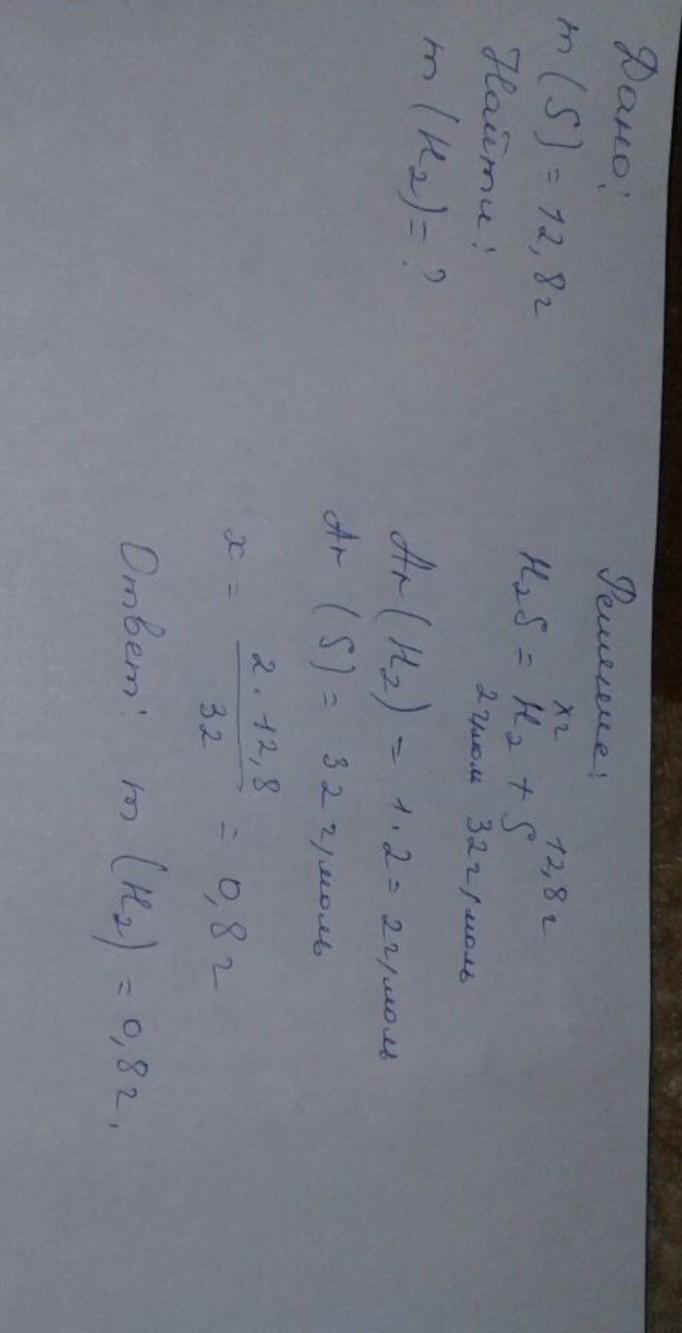 Дано:
m(S) = 12,8 г
Найти:
m(H₂) = ?
Решение:
x г 12,8 г
H₂S = H₂ + S
2 г/мол 32 г/моль
Ar(H₂) = 1·2 = 2 г/моль
Ar(S) = 32 г/моль
x = 2·12,8 / 32 = 0,8 г
Ответ: m(H₂) = 0,8 г,